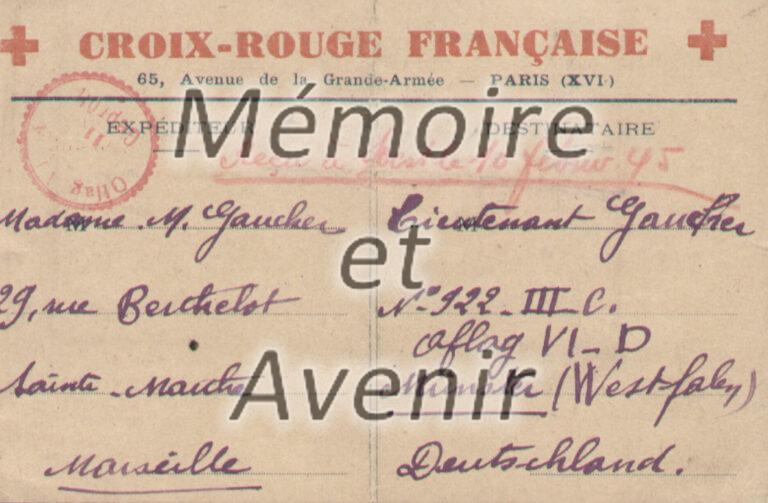 CROIX-ROUGE FRANÇAISE
65, Avenue de la Grande-Armée — PARIS (XVI)
Mémoire
EXPÉDITEUR
DESTINATAIRE
Reçu à le 10 février 45
Oflag
Madame M. Gaucher
Lieutenant Gaucher
et
29, rue Berthelot
N° 922 - III - C.
Oflag VI - D
Sainte-Marthe
Münster (Westfalen)
Avenir
Marseille
Deutschland.